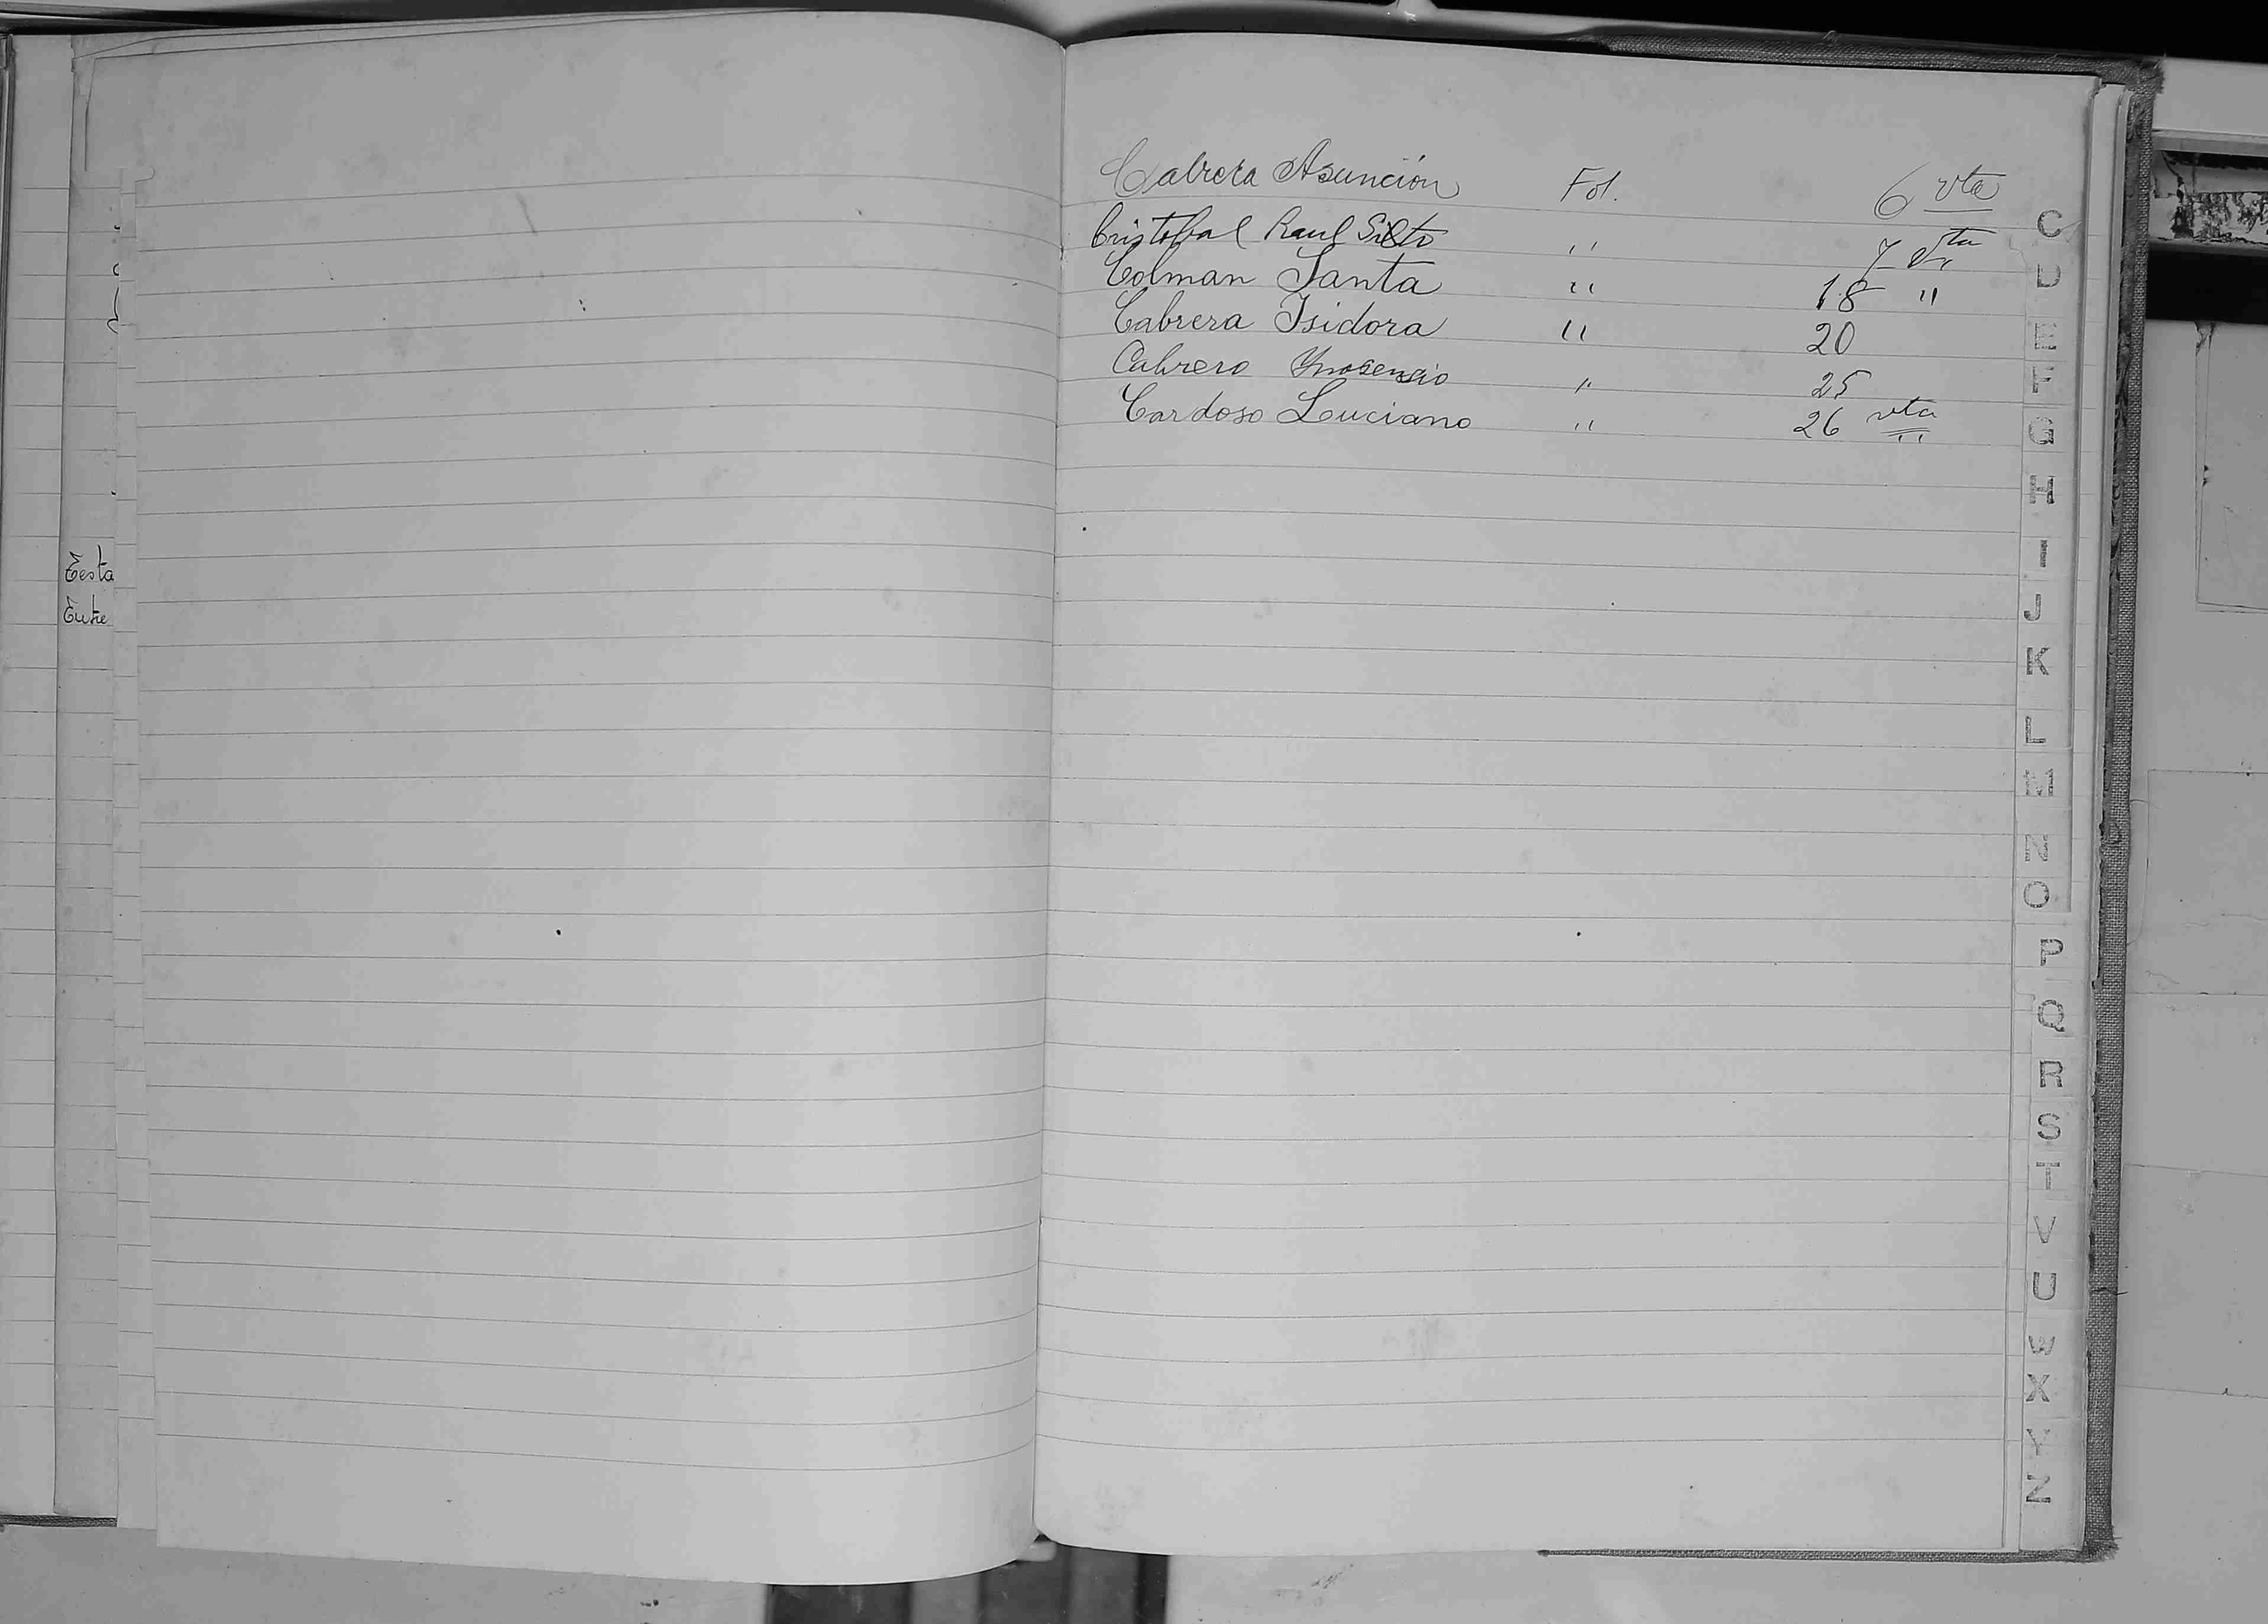 Cabrera Asunción Fol. 6 vta
Cristobal Raul 7 vta
Colman Santa " 18 "
Cabrera Isidora " 20
Cabrera Ynosensio " 25
Cardoso Luciano " 26 vta
Eesta
Entre
C
D
E
F
G
H
I
J
K
L
M
N
O
P
Q
R
S
T
V
U
W
X
Y
Z